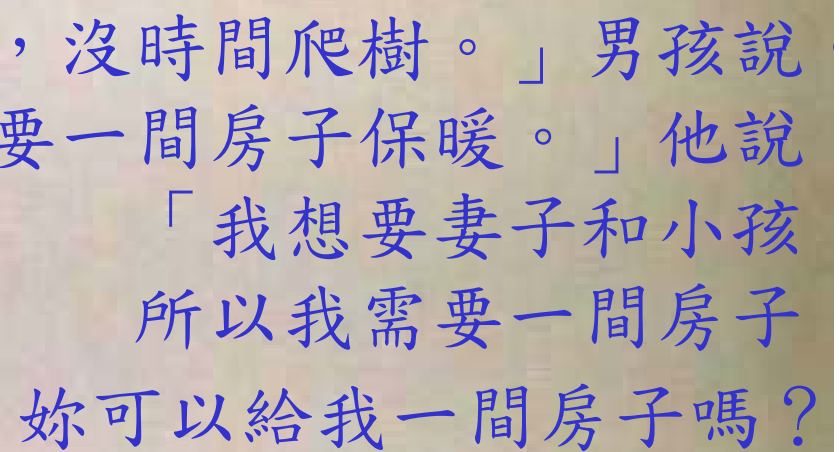 ，沒時間爬樹。」男孩說
要一間房子保暖。」他說
「我想要妻子和小孩
所以我需要一間房子
妳可以給我一間房子嗎？